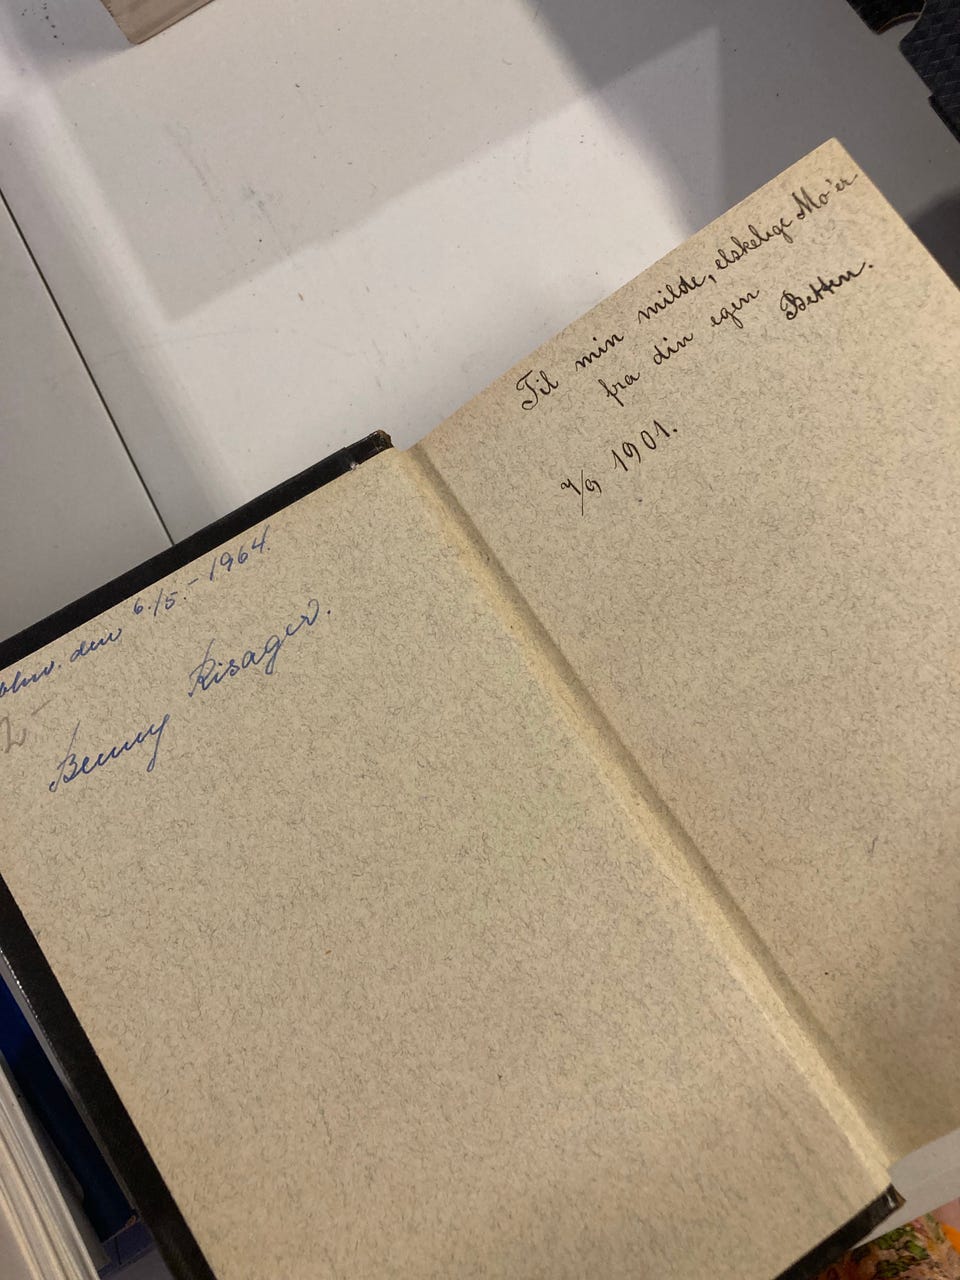 den 6./5.-1964.
2-
Benny Risager.
Til min milde, elskelige Mo'er
fra din egen
Betten.
7/9 1901.